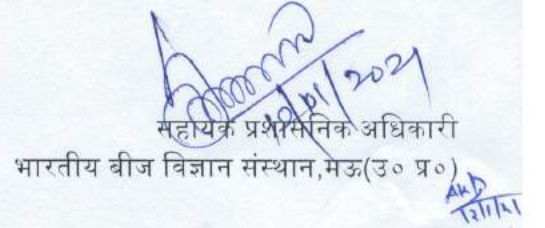 12/01/2021
सहायक प्रशासनिक अधिकारी
भारतीय बीज विज्ञान संस्थान,मऊ(उ० प्र०)
12/1/21